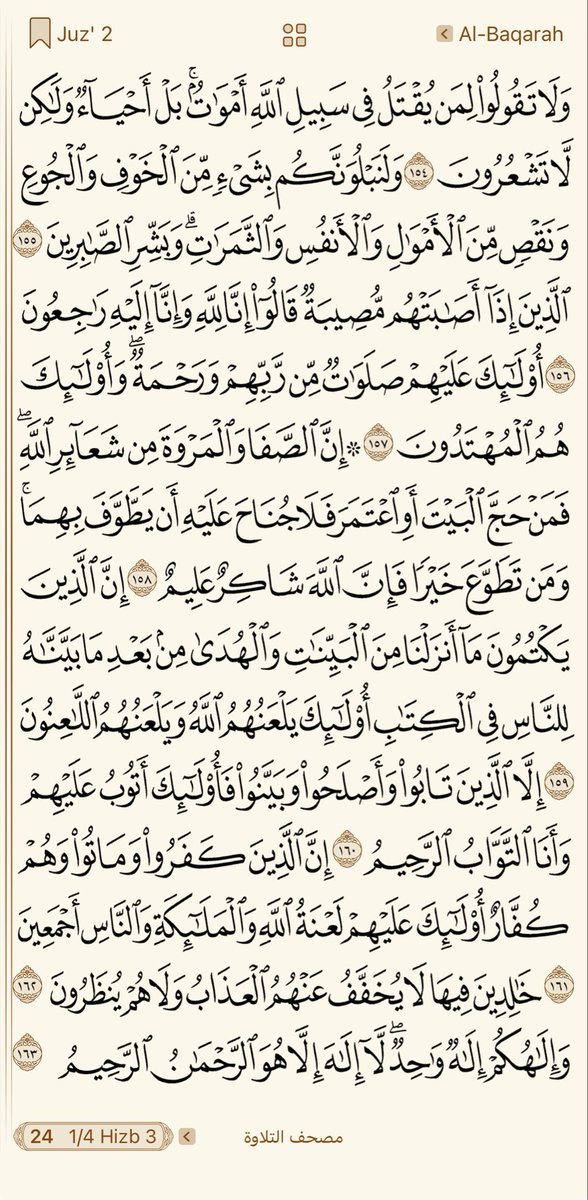 Juz' 2
Al-Baqarah
وَلَا تَقُولُوا۟ لِمَن يُقْتَلُ فِى سَبِيلِ ٱللَّهِ أَمْوَٰتٌۢ ۚ بَلْ أَحْيَآءٌ وَلَـٰكِن
لَّا تَشْعُرُونَ ١٥٤ وَلَنَبْلُوَنَّكُم بِشَىْءٍ مِّنَ ٱلْخَوْفِ وَٱلْجُوعِ
وَنَقْصٍ مِّنَ ٱلْأَمْوَٰلِ وَٱلْأَنفُسِ وَٱلثَّمَرَٰتِ ۗ وَبَشِّرِ ٱلصَّـٰبِرِينَ ١٥٥
ٱلَّذِينَ إِذَآ أَصَـٰبَتْهُم مُّصِيبَةٌ قَالُوٓا۟ إِنَّا لِلَّهِ وَإِنَّآ إِلَيْهِ رَٰجِعُونَ
١٥٦ أُو۟لَـٰٓئِكَ عَلَيْهِمْ صَلَوَٰتٌ مِّن رَّبِّهِمْ وَرَحْمَةٌ ۖ وَأُو۟لَـٰٓئِكَ
هُمُ ٱلْمُهْتَدُونَ ١٥٧ ۞ إِنَّ ٱلصَّفَا وَٱلْمَرْوَةَ مِن شَعَآئِرِ ٱللَّهِ ۖ
فَمَنْ حَجَّ ٱلْبَيْتَ أَوِ ٱعْتَمَرَ فَلَا جُنَاحَ عَلَيْهِ أَن يَطَّوَّفَ بِهِمَا ۚ
وَمَن تَطَوَّعَ خَيْرًا فَإِنَّ ٱللَّهَ شَاكِرٌ عَلِيمٌ ١٥٨ إِنَّ ٱلَّذِينَ
يَكْتُمُونَ مَآ أَنزَلْنَا مِنَ ٱلْبَيِّنَـٰتِ وَٱلْهُدَىٰ مِنۢ بَعْدِ مَا بَيَّنَّـٰهُ
لِلنَّاسِ فِى ٱلْكِتَـٰبِ أُو۟لَـٰٓئِكَ يَلْعَنُهُمُ ٱللَّهُ وَيَلْعَنُهُمُ ٱللَّـٰعِنُونَ
١٥٩ إِلَّا ٱلَّذِينَ تَابُوا۟ وَأَصْلَحُوا۟ وَبَيَّنُوا۟ فَأُو۟لَـٰٓئِكَ أَتُوبُ عَلَيْهِمْ
وَأَنَا ٱلتَّوَّابُ ٱلرَّحِيمُ ١٦٠ إِنَّ ٱلَّذِينَ كَفَرُوا۟ وَمَاتُوا۟ وَهُمْ
كُفَّارٌ أُو۟لَـٰٓئِكَ عَلَيْهِمْ لَعْنَةُ ٱللَّهِ وَٱلْمَلَـٰٓئِكَةِ وَٱلنَّاسِ أَجْمَعِينَ
١٦١ خَـٰلِدِينَ فِيهَا لَا يُخَفَّفُ عَنْهُمُ ٱلْعَذَابُ وَلَا هُمْ يُنظَرُونَ ١٦٢
وَإِلَـٰهُكُمْ إِلَـٰهٌ وَٰحِدٌ ۖ لَّآ إِلَـٰهَ إِلَّا هُوَ ٱلرَّحْمَـٰنُ ٱلرَّحِيمُ ١٦٣
24 1/4 Hizb 3
مصحف التلاوة